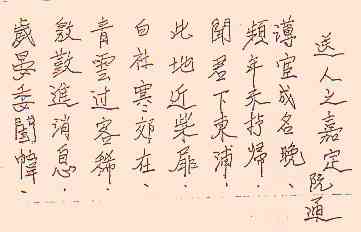 送人之嘉定 阮通
薄宦成名晚、
頻年未得歸、
聞君下東浦、
此地近柴扉、
白社寒郊在、
青雲过客稀、
進消息、
歲晏委闈幃、